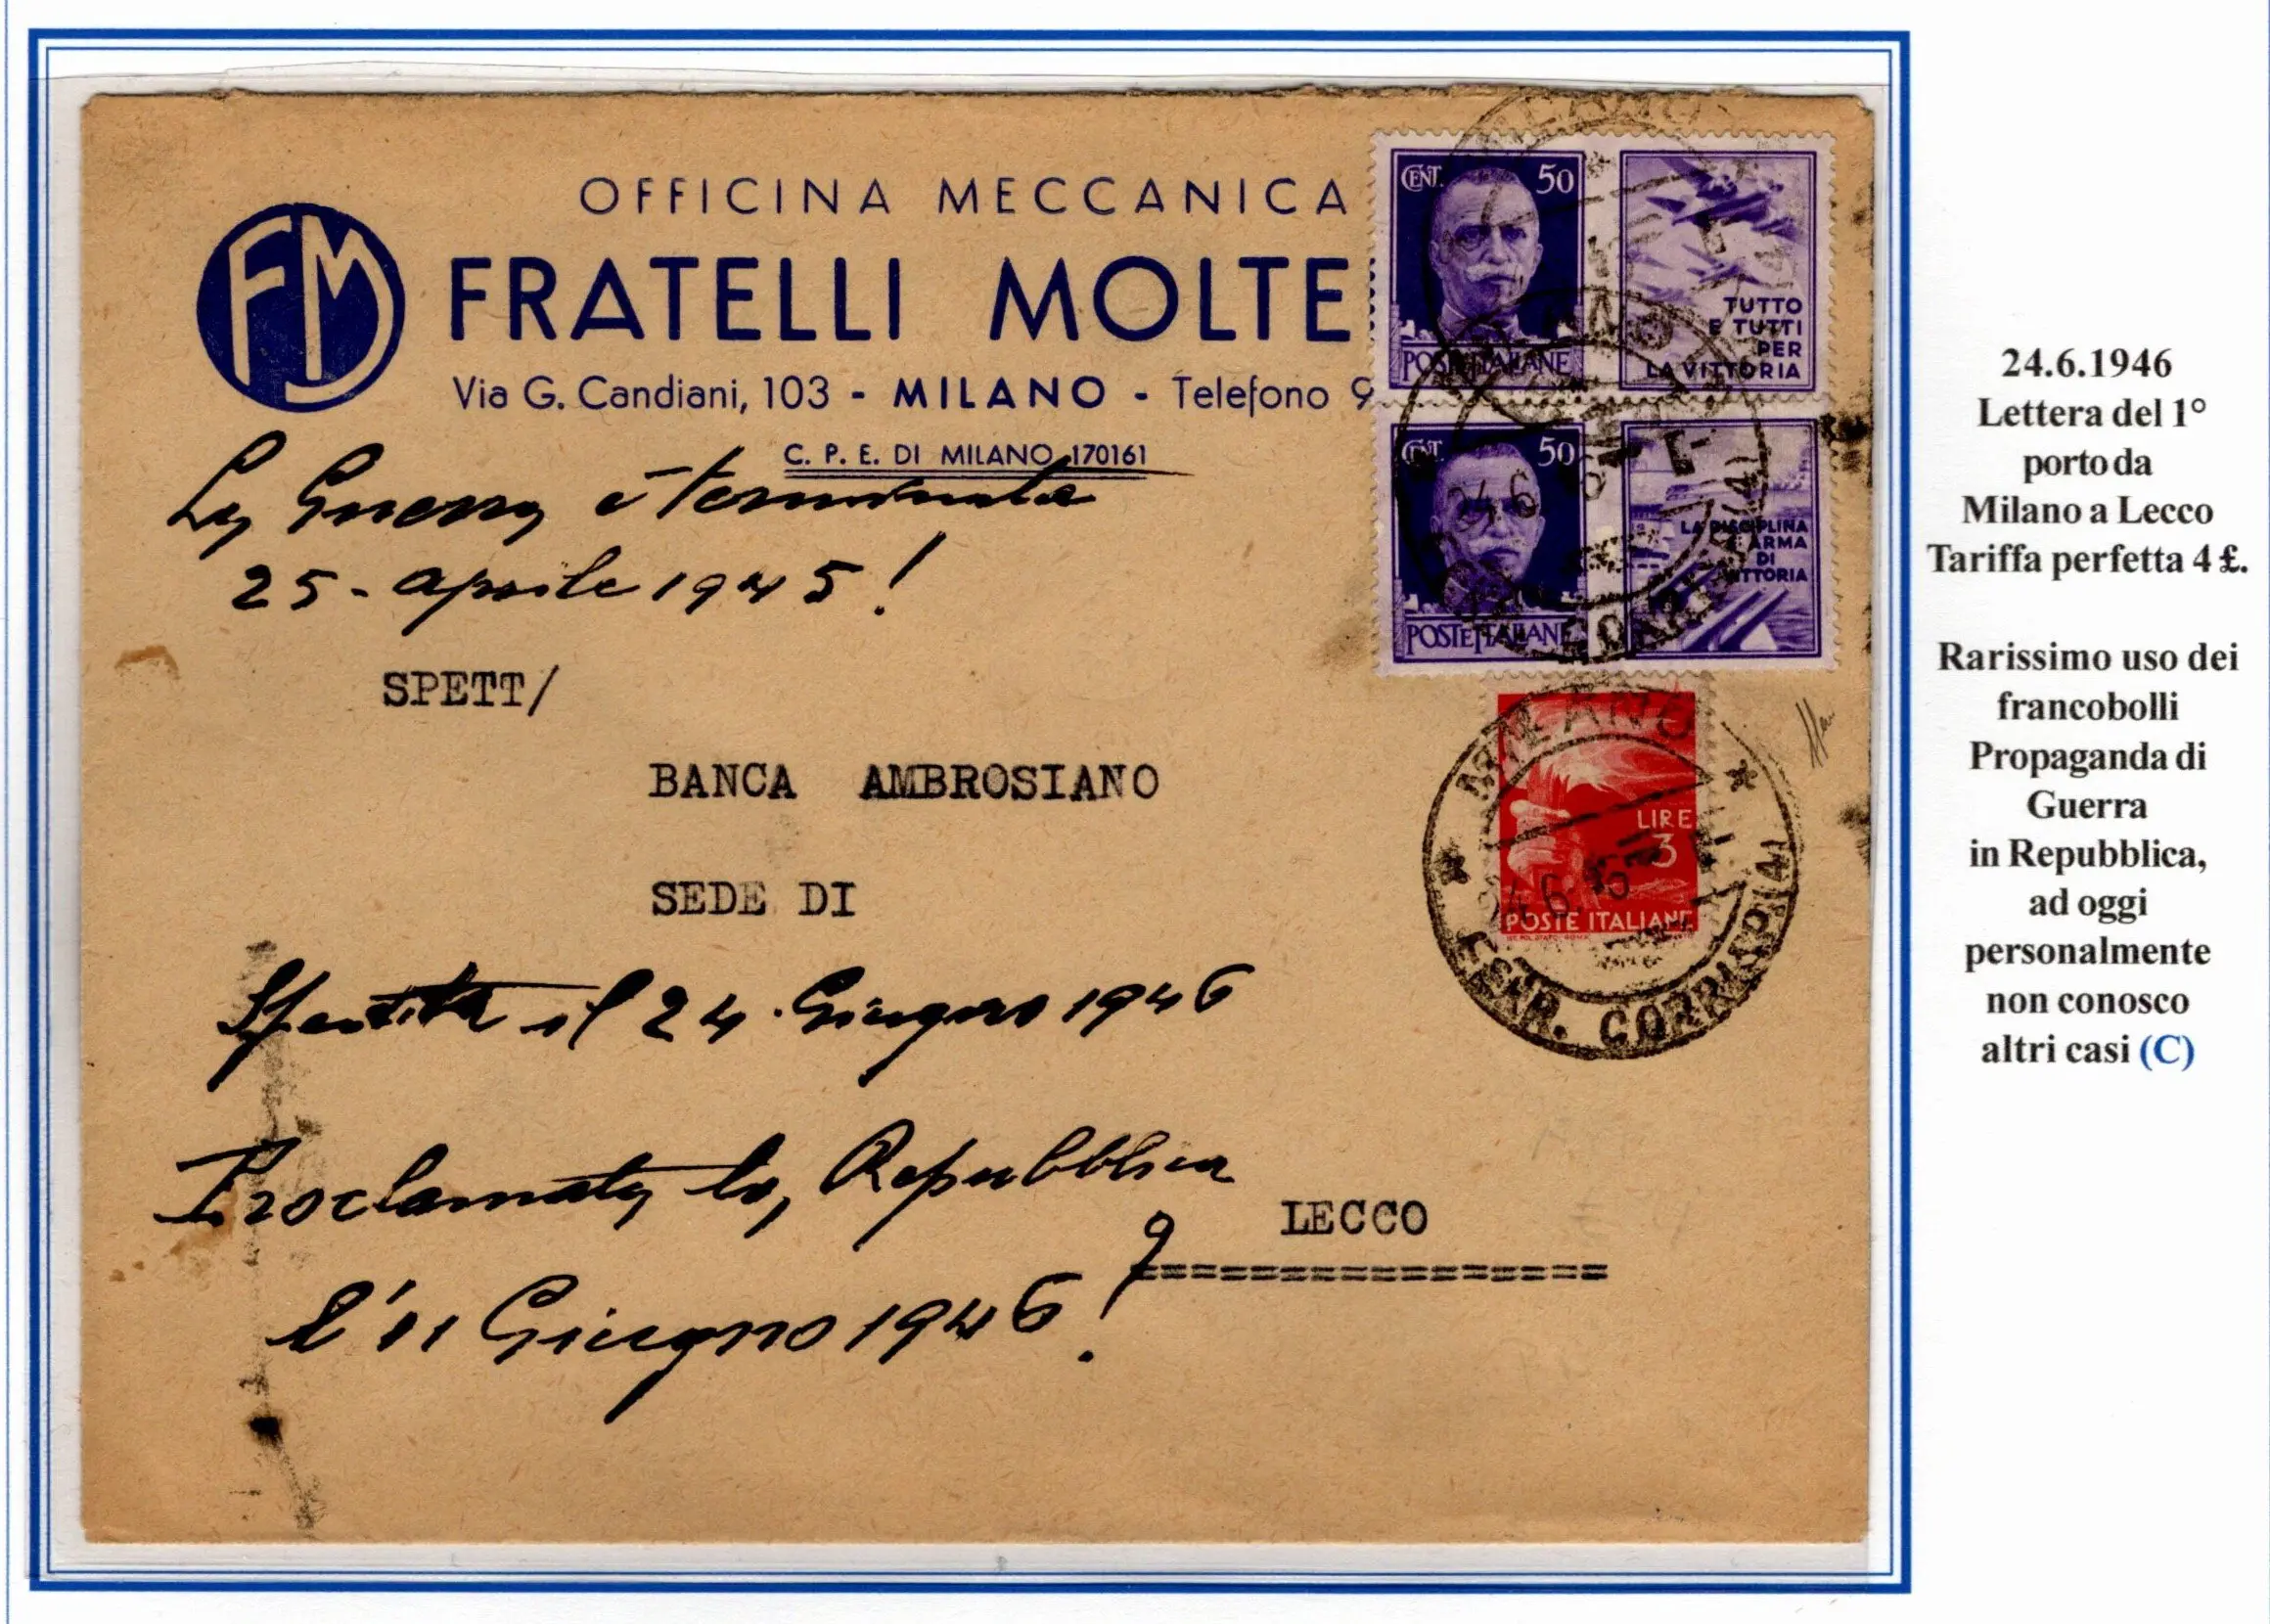 OFFICINA MECCANICA
FM
FRATELLI MOLTE
Via G. Candiani, 103 - MILANO - Telefono 9
C. P. E. DI MILANO 170161
La Guerra è terminata
25 - aprile 1945!
SPETT/
BANCA AMBROSIANO
SEDE DI
Spedita il 24 Giugno 1946
Proclamata la Repubblica
LECCO
=================
l'11 Giugno 1946!
CENT. 50
POSTE ITALIANE
TUTTO
E TUTTI
PER
LA VITTORIA
CENT. 50
POSTE ITALIANE
LA DISCIPLINA
È ARMA
DI
VITTORIA
LIRE
3
POSTE ITALIANE
MILANO
24.6
FERR. CORRISP.(4)
24.6.1946
Lettera del 1°
porto da
Milano a Lecco
Tariffa perfetta 4 £.
Rarissimo uso dei
francobolli
Propaganda di
Guerra
in Repubblica,
ad oggi
personalmente
non conosco
altri casi (C)